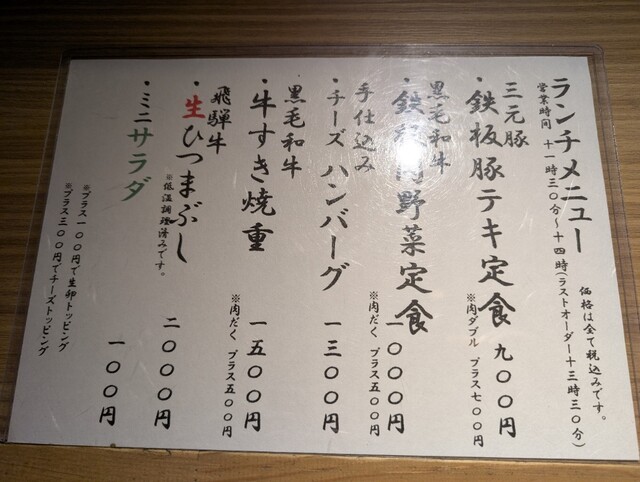 ランチメニュー
営業時間 十一時三〇分～十四時(ラストオーダー十三時三〇分)
価格は全て税込みです。
三元豚
・鉄板豚テキ定食 九〇〇円
※肉ダブル プラス七〇〇円
黒毛和牛
・鉄板 野菜定食 一〇〇〇円
※肉だく プラス五〇〇円
手仕込み
・チーズ ハンバーグ 一三〇〇円
黒毛和牛
・牛すき焼重 一五〇〇円
※肉だく プラス五〇〇円
飛騨牛
・生ひつまぶし 二〇〇〇円
※低温調理済みです。
・ミニサラダ 一〇〇円
※プラス一〇〇円で生卵トッピング
※プラス三〇〇円でチーズトッピング